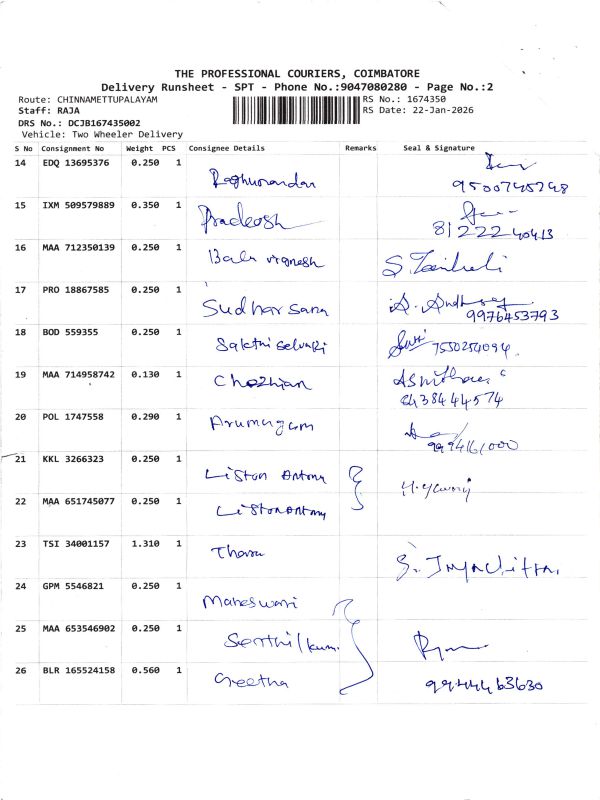 THE PROFESSIONAL COURIERS, COIMBATORE
Delivery Runsheet - SPT - Phone No.:9047080280 - Page No.:2
Route: CHINNAMETTUPALAYAM RS No.: 1674350
Staff: RAJA RS Date: 22-Jan-2026
DRS No.: DCJB167435002
Vehicle: Two Wheeler Delivery
S No Consignment No Weight PCS Consignee Details Remarks Seal & Signature
14 EDQ 13695376 0.250 1
Raghunandan 9500745248
15 IXM 509579889 0.350 1
Pradeesh 81222 40413
16 MAA 712350139 0.250 1
Bala vignesh
17 PRO 18867585 0.250 1
Sudharsana 9976453793
18 BOD 559355 0.250 1
Sakthi selvari 7550254094
19 MAA 714958742 0.130 1
Chezhian
8438444574
20 POL 1747558 0.290 1
Arumugam
9994161000
21 KKL 3266323 0.250 1
Liston Antony
22 MAA 651745077 0.250 1
Liston Antony
23 TSI 34001157 1.310 1
Tharu
24 GPM 5546821 0.250 1
Maheswari
25 MAA 653546902 0.250 1
Senthil kum.
26 BLR 165524158 0.560 1
Geetha 9944463630